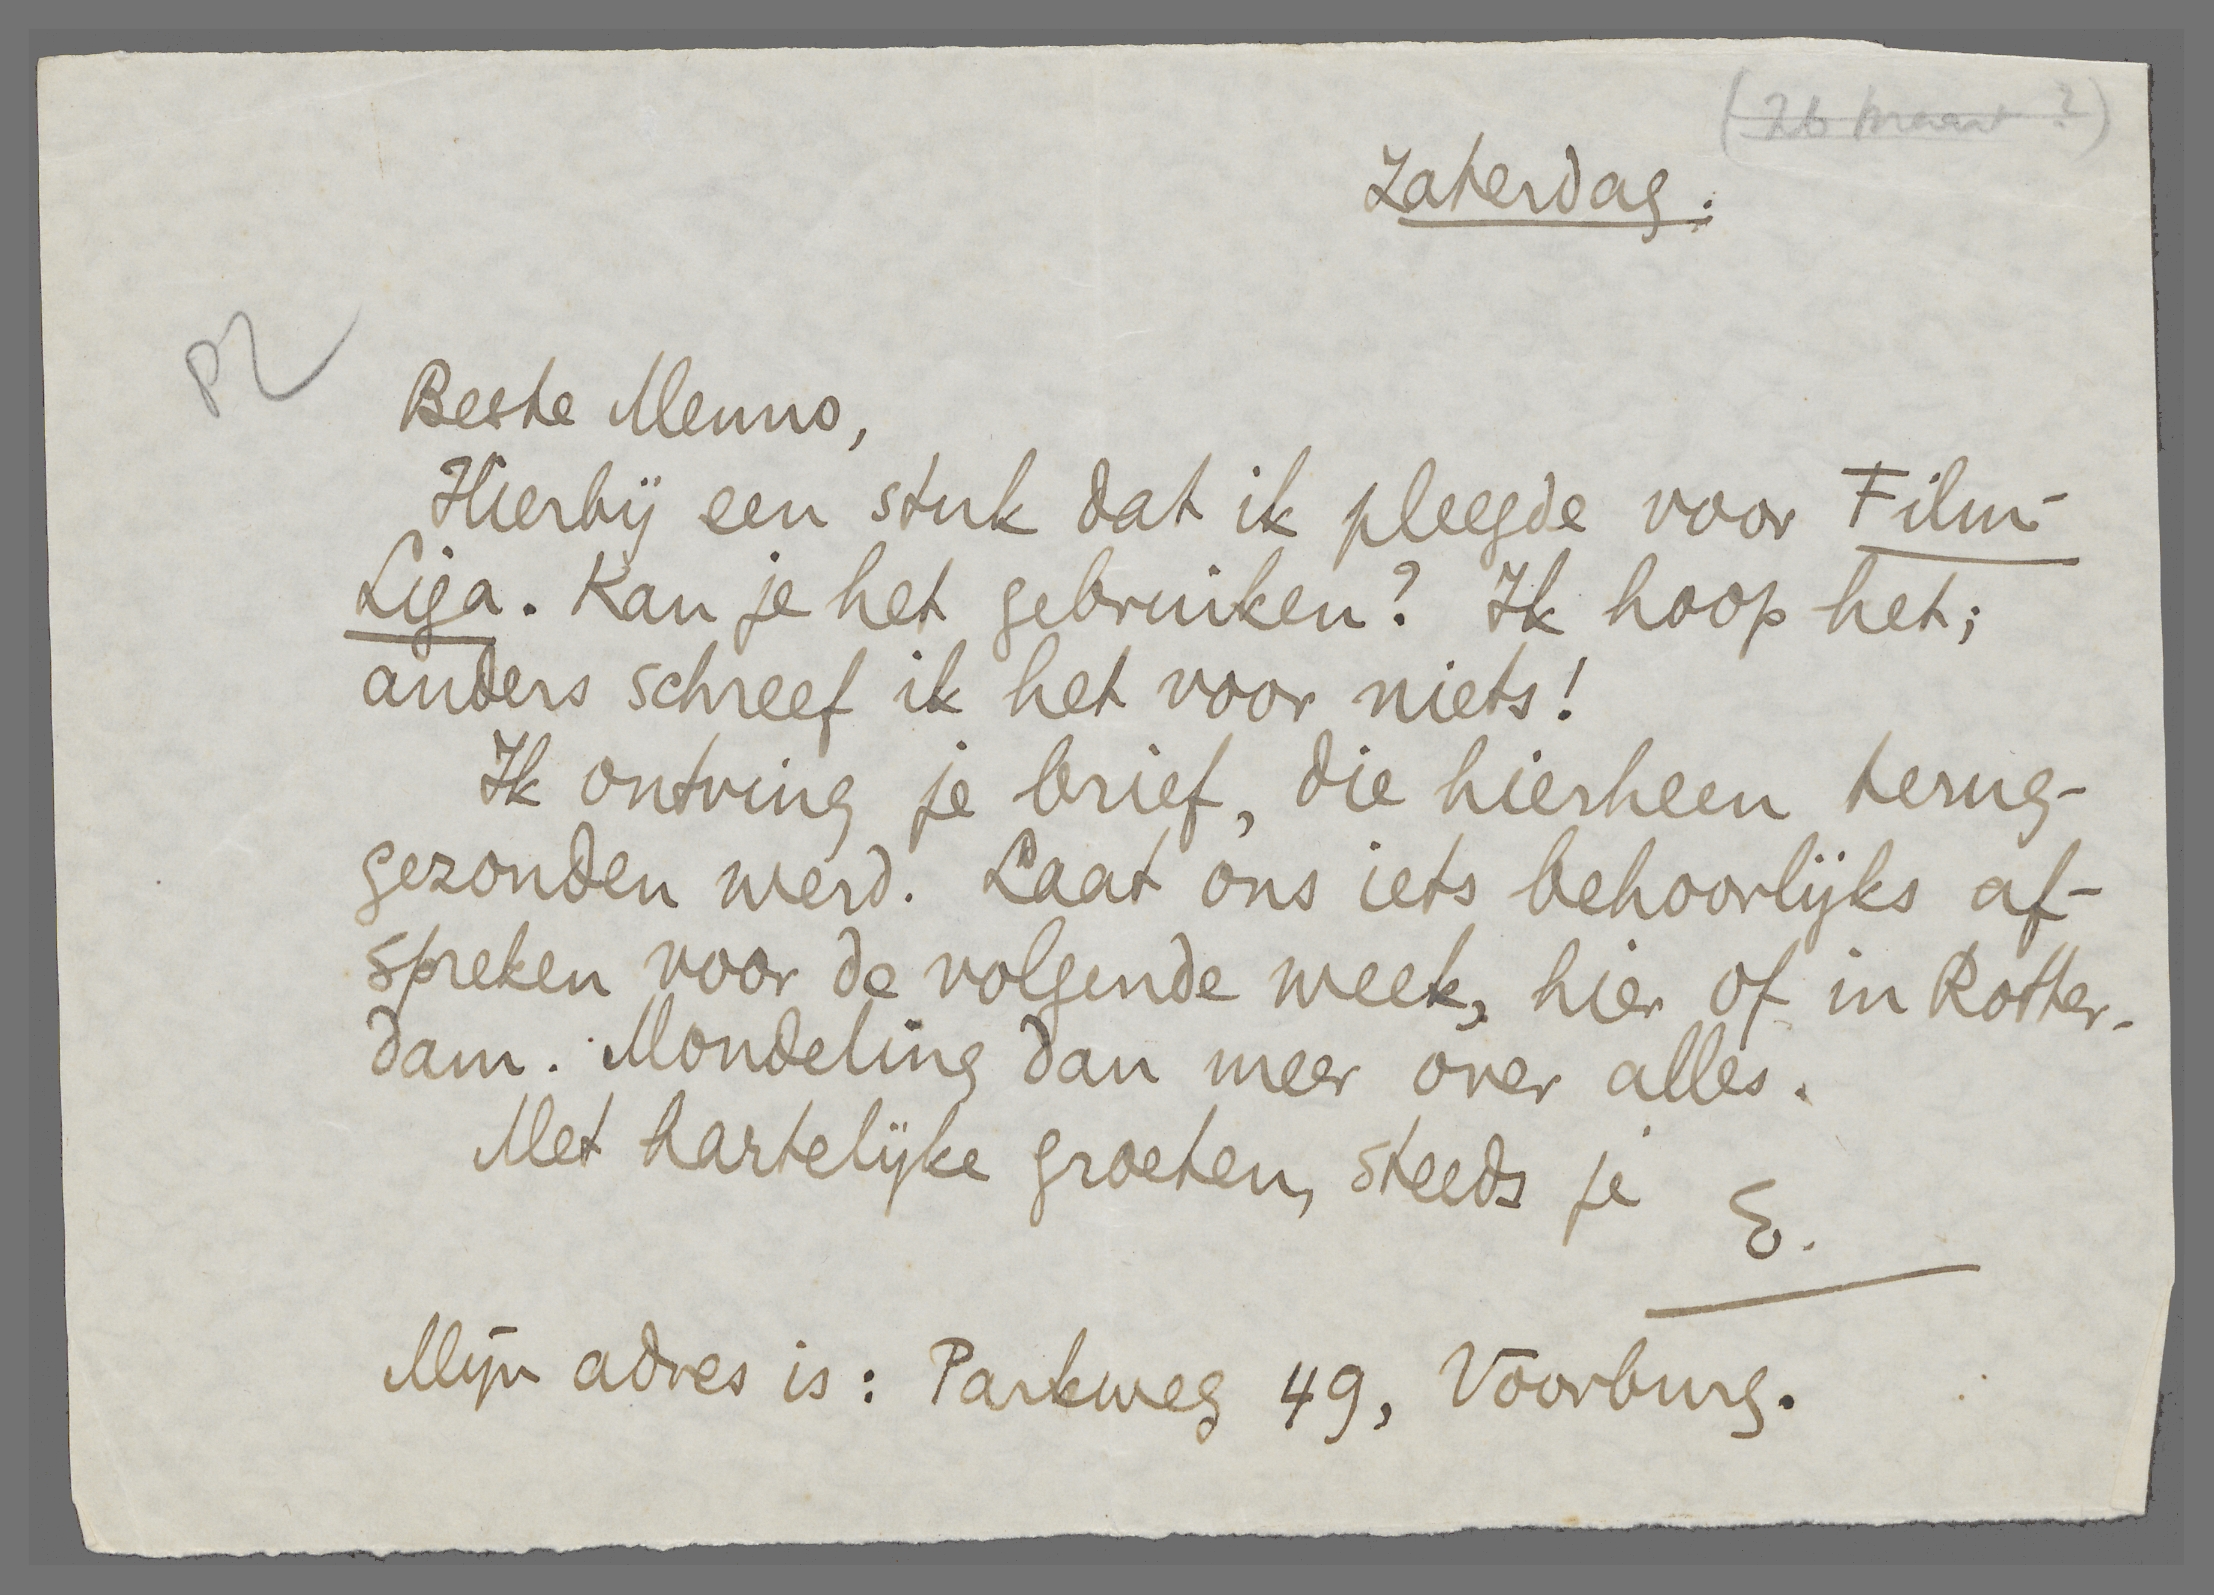 (26 maart ?)
Zaterdag.
Beste Menno,
Hierbij een stuk dat ik pleegde voor Film-
Liga. Kan je het gebruiken? Ik hoop het;
anders schreef ik het voor niets!
Ik ontving je brief, die hierheen terug-
gezonden werd. Laat ons iets behoorlijks af-
spreken voor de volgende week, hier of in Rotter-
dam. Mondeling dan meer over alles.
Met hartelijke groeten, steeds je
E.
Mijn adres is: Parkweg 49, Voorburg.